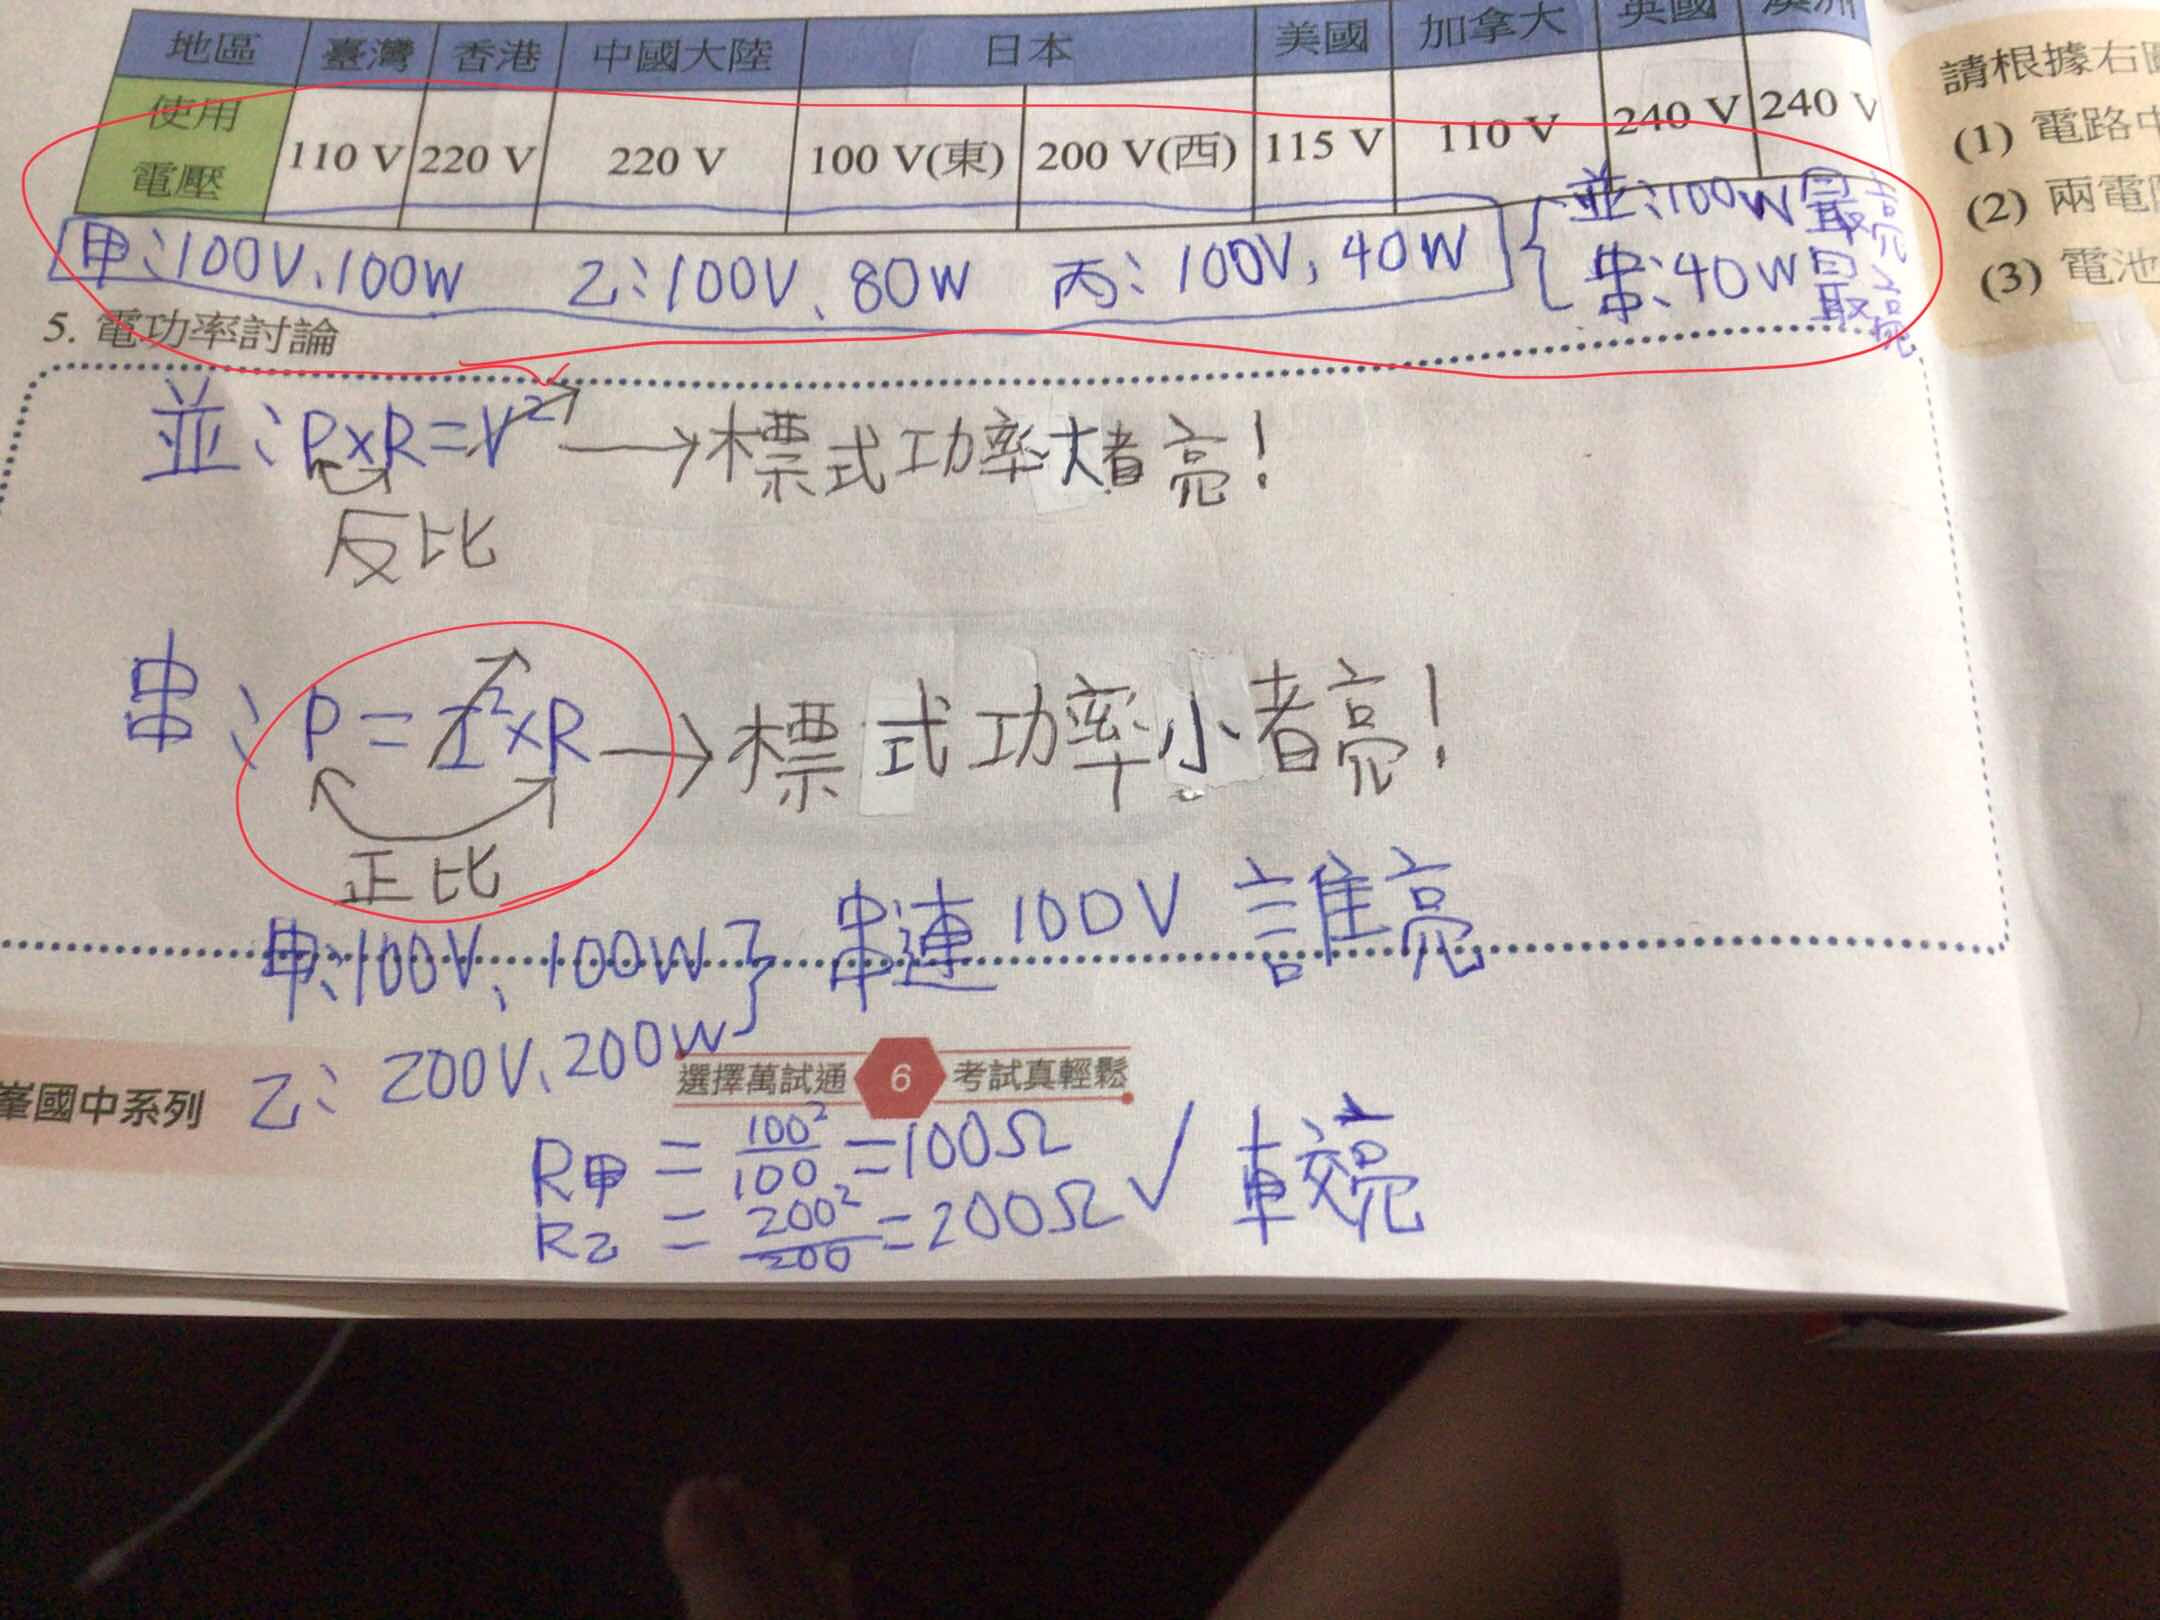 地區 臺灣 香港 中國大陸 日本 美國 加拿大 英國 澳洲
使用電壓 110 V 220 V 220 V 100 V(東) 200 V(西) 115 V 110 V 240 V 240 V
甲:100V、100W 乙:100V、80W 丙:100V、40W
並:100W最亮
串:40W最亮
5. 電功率討論
並:P×R=V² → 標式功率大者亮!
反比
串:P=I²×R → 標式功率小者亮!
正比
甲:100V、100W } 串連100V 誰亮
乙:200V、200W
選擇萬試通 6 考試真輕鬆
峯國中系列
R甲 = 100²/100 = 100Ω
R乙 = 200²/200 = 200Ω ✓ 較亮
請根據右
(1) 電路
(2) 兩電
(3) 電池